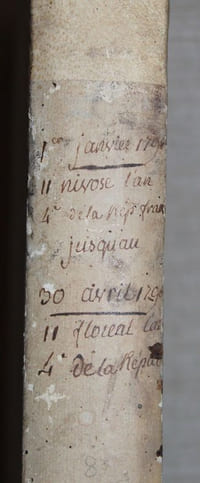 1er janvier 179
11 nivose l'an
4e de la Rep. fran
jusquau
30 avril 179
11 floreal l'an
4e de la Répu
8